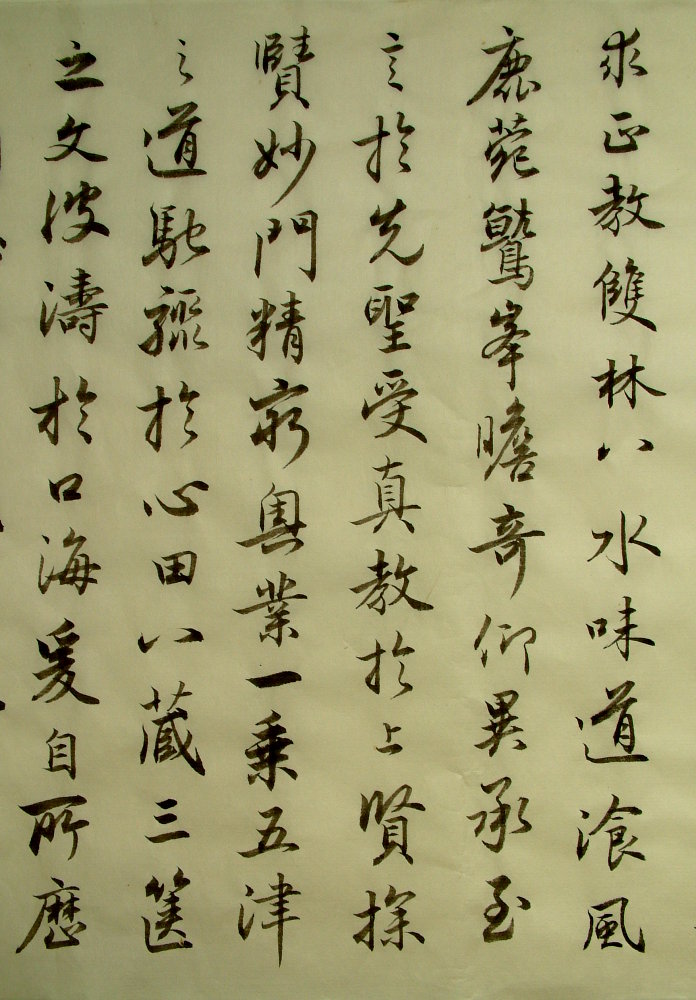 求正教雙林八水味道飡風
鹿菀鷲峯瞻奇仰異承至
言於先聖受真教於上賢探
賾妙門精窮奧業一乘五津
之道馳驟於心田八藏三篋
之文波濤於口海爰自所歷